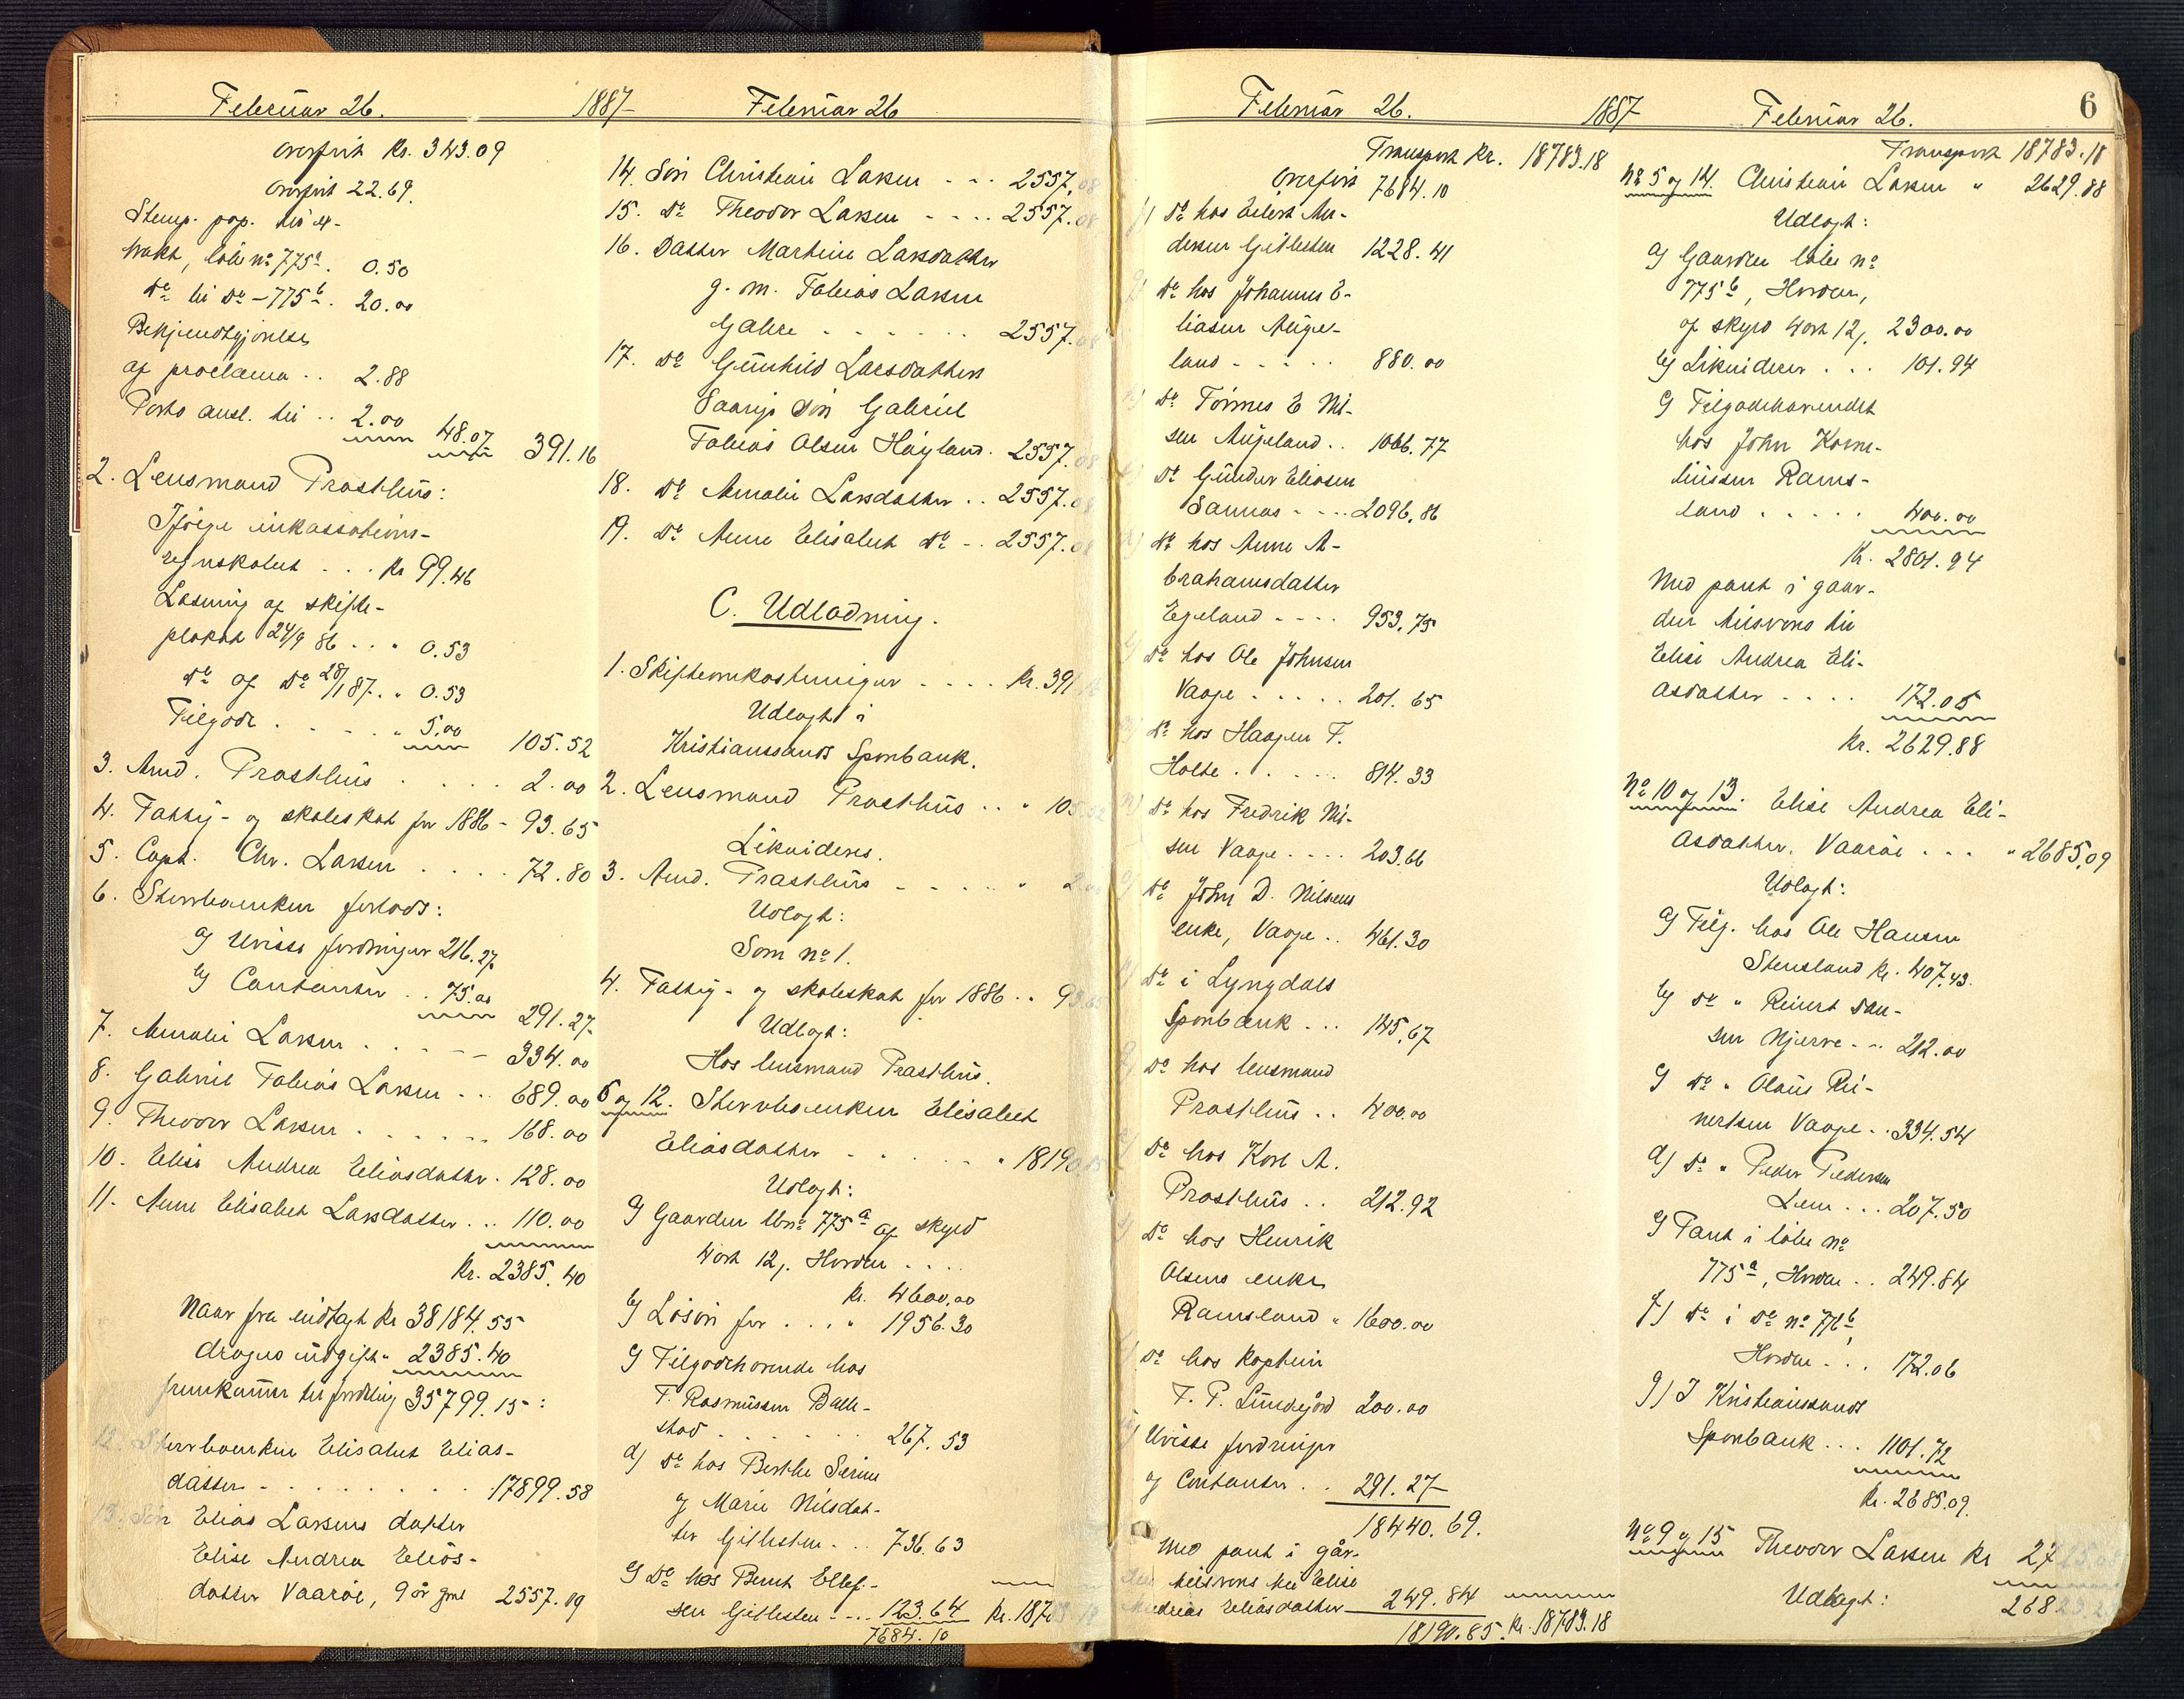 Februar 26. 1887 Februar 26
overført Kr. 343.09
overført 22.69.
Stemp. pap. til a-
trakt, løbe nº 775ª. 0.50
dº til dº - 775ᵇ. 20.00
Bekjendtgjørelse
af proclama .. 2.88
Porto anst. til .. 2.00 48.07 391.16
2. Lensmand Prasthus:
Ifølge inkassations-
regnskabet ... Kr 99.46
Læsning af skifte-
plakat 24/9 86 ... 0.53
dº af dº 28/1 87. " 0.53
Tilgode . . . . " 5,00 105.52
3. Amd. Prasthus . . . . 2.00
4. Fattig- og skoleskat for 1886 - 93.65
5. Capt. Chr. Larsen . . . . 72.80
6. Stervboenken forlods:
a) Uvisse fordringer 216.27
b) Contanter .. 75.00 291.27
7. Amalie Larsen . . . . 334.00
8. Gabriel Tobias Larsen ... 689.00
9. Theodor Larsen . . . . . . 168.00
10. Elise Andrea Eliasdatter . 128.00
11. Anne Elisabet Larsdatter ... 110.00
Kr. 2385.40
Naar fra indtægt Kr 38184.55
drages udgift " 2385.40
fremkommer til fordeling 35799.15:
12. Stervboenken Elisabet Elias-
datter - . . . . . . . . 17899.58
13. Søn Elias Larsens datter
Elise Andrea Elias-
datter Vaarøi, 9 år gml 2557.09
14. Søn Christian Larsen - - - 2557.08
15. dº Theodor Larsen - - - - 2557.08
16. Datter Martine Larsdatter
g. m. Tobias Larsen
Gahre - . . . . . . 2557.08
17. dº Gunhild Larsdatters
Saarige søn Gabriel
Tobias Olsen Høyland. 2557.08
18. dº Amalie Larsdatter .. 2557.08
19. dº Anne Elisabet dº - . 2557.08
C. Udlodning.
1. Skifteomkostninger - - - - Kr. 391.16
Udlagt i
Kristianssands Sparebank.
2. Lensmand Prasthus .. " 105.52
Likvideres.
3. Amd. Prasthus - - . . . " 2.00
Udlagt:
Som nº 1.
4. Fattig- og skoleskat for 1886 .. 93.65
Udlagt:
Hos lensmand Prasthus.
6 og 12. Stervboenken Elisabet
Eliasdatter - . . . . " 18190.85
Udlagt:
a) Gaarden lbnº 775ª af skyld
4 ort 12 j. Horden . . . .
Kr. 4600.00
b) Løsøre for . . . " 1956.30
c) Tilgodehavende hos
T. Rasmussen Balle-
stad . . . . . . . 267.53
d) dº hos Berthe Serine
og Marie Nilsdat-
ter Gitlesten . .. 736.63
e) dº hos Bernt Ellef-
sen Gitlesten - .. 123.64 Kr. 18783.18
7684.10
Februar 26. 1887 Februar 26. 6
Transport Kr. 18783.18
Overført 7684.10
f) dº hos Eilert An-
dersen Gitlesten 1228.41
g) dº hos Johannes E-
liasen Augel-
land - - - - - 880.00
dº Tønnes E Nil-
sen Augeland .. 1066.77
dº Gunder Eliasen
Sannas - - - - 2096.86
dº hos Anne A-
brahamsdatter
Egeland - - - - 953.75
dº hos Ole Johnsen
Vaage . . . . . 201.65
dº hos Haagen F.
Holte . . . . . . 814.33
m) dº hos Fredrik Nil-
sen Vaage . . . . 203.66
dº John D. Nilsens
enke, Vaage .. 461.30
dº i Lyngdals
Sparebank ... 145.67
dº hos lensmand
Prasthus .. 400.00
dº hos Karl A.
Prasthus .. 212.92
dº hos Henrik
Olsens enke
Ramsland " 1600.00
dº hos Kaptein
T. P. Lundegård 200.00
Uvisse fordringer
og Contanter . . 291.27
18440.69.
Med pant i går-
den tilsvares til Elise
Andreas Eliasdatter 249.84
18190.85. Kr. 18783.18
Transport 18783.18
Nº 5 og 14. Christian Larsen " 2629.88
Udlagt:
a) Gaarden løbe nº
775ᵇ, Horden,
af skyld 4 ort 12 j. 2300.00
b) Likviderer . . . 101.94
c) Tilgodehavendet
hos John Korne-
liussen Rams-
land . . . . . 400.00
Kr. 2801.94
Med pant i gaar-
den tilsvares til
Elise Andrea Eli-
asdatter . . . . 172.05
Kr. 2629.88
Nº 10 og 13. Elise Andrea Eli-
asdatter. Vaarøi . . . " 2685,09
Udlagt:
a) Tilg. hos Ole Hansen
Stensland Kr. 407.43.
b) dº " Reinert Dan-
sen Njerve - .. 212.00
c) dº " Olaus Rei-
nertsen Vaage . . 334.54
d) dº " Peder Pedersen
Lem ... 207.50
e) Pant i løbe nº
775ª, Horden .. 249.84
f) dº i dº nº 776ᵇ,
Horden . . . 172.06
g) I Kristianssands
Sparebank ... 1101.72
Kr. 2685.09.
Nº 9 og 15 Theodor Larsen Kr 2725.08
Udlagt: 268